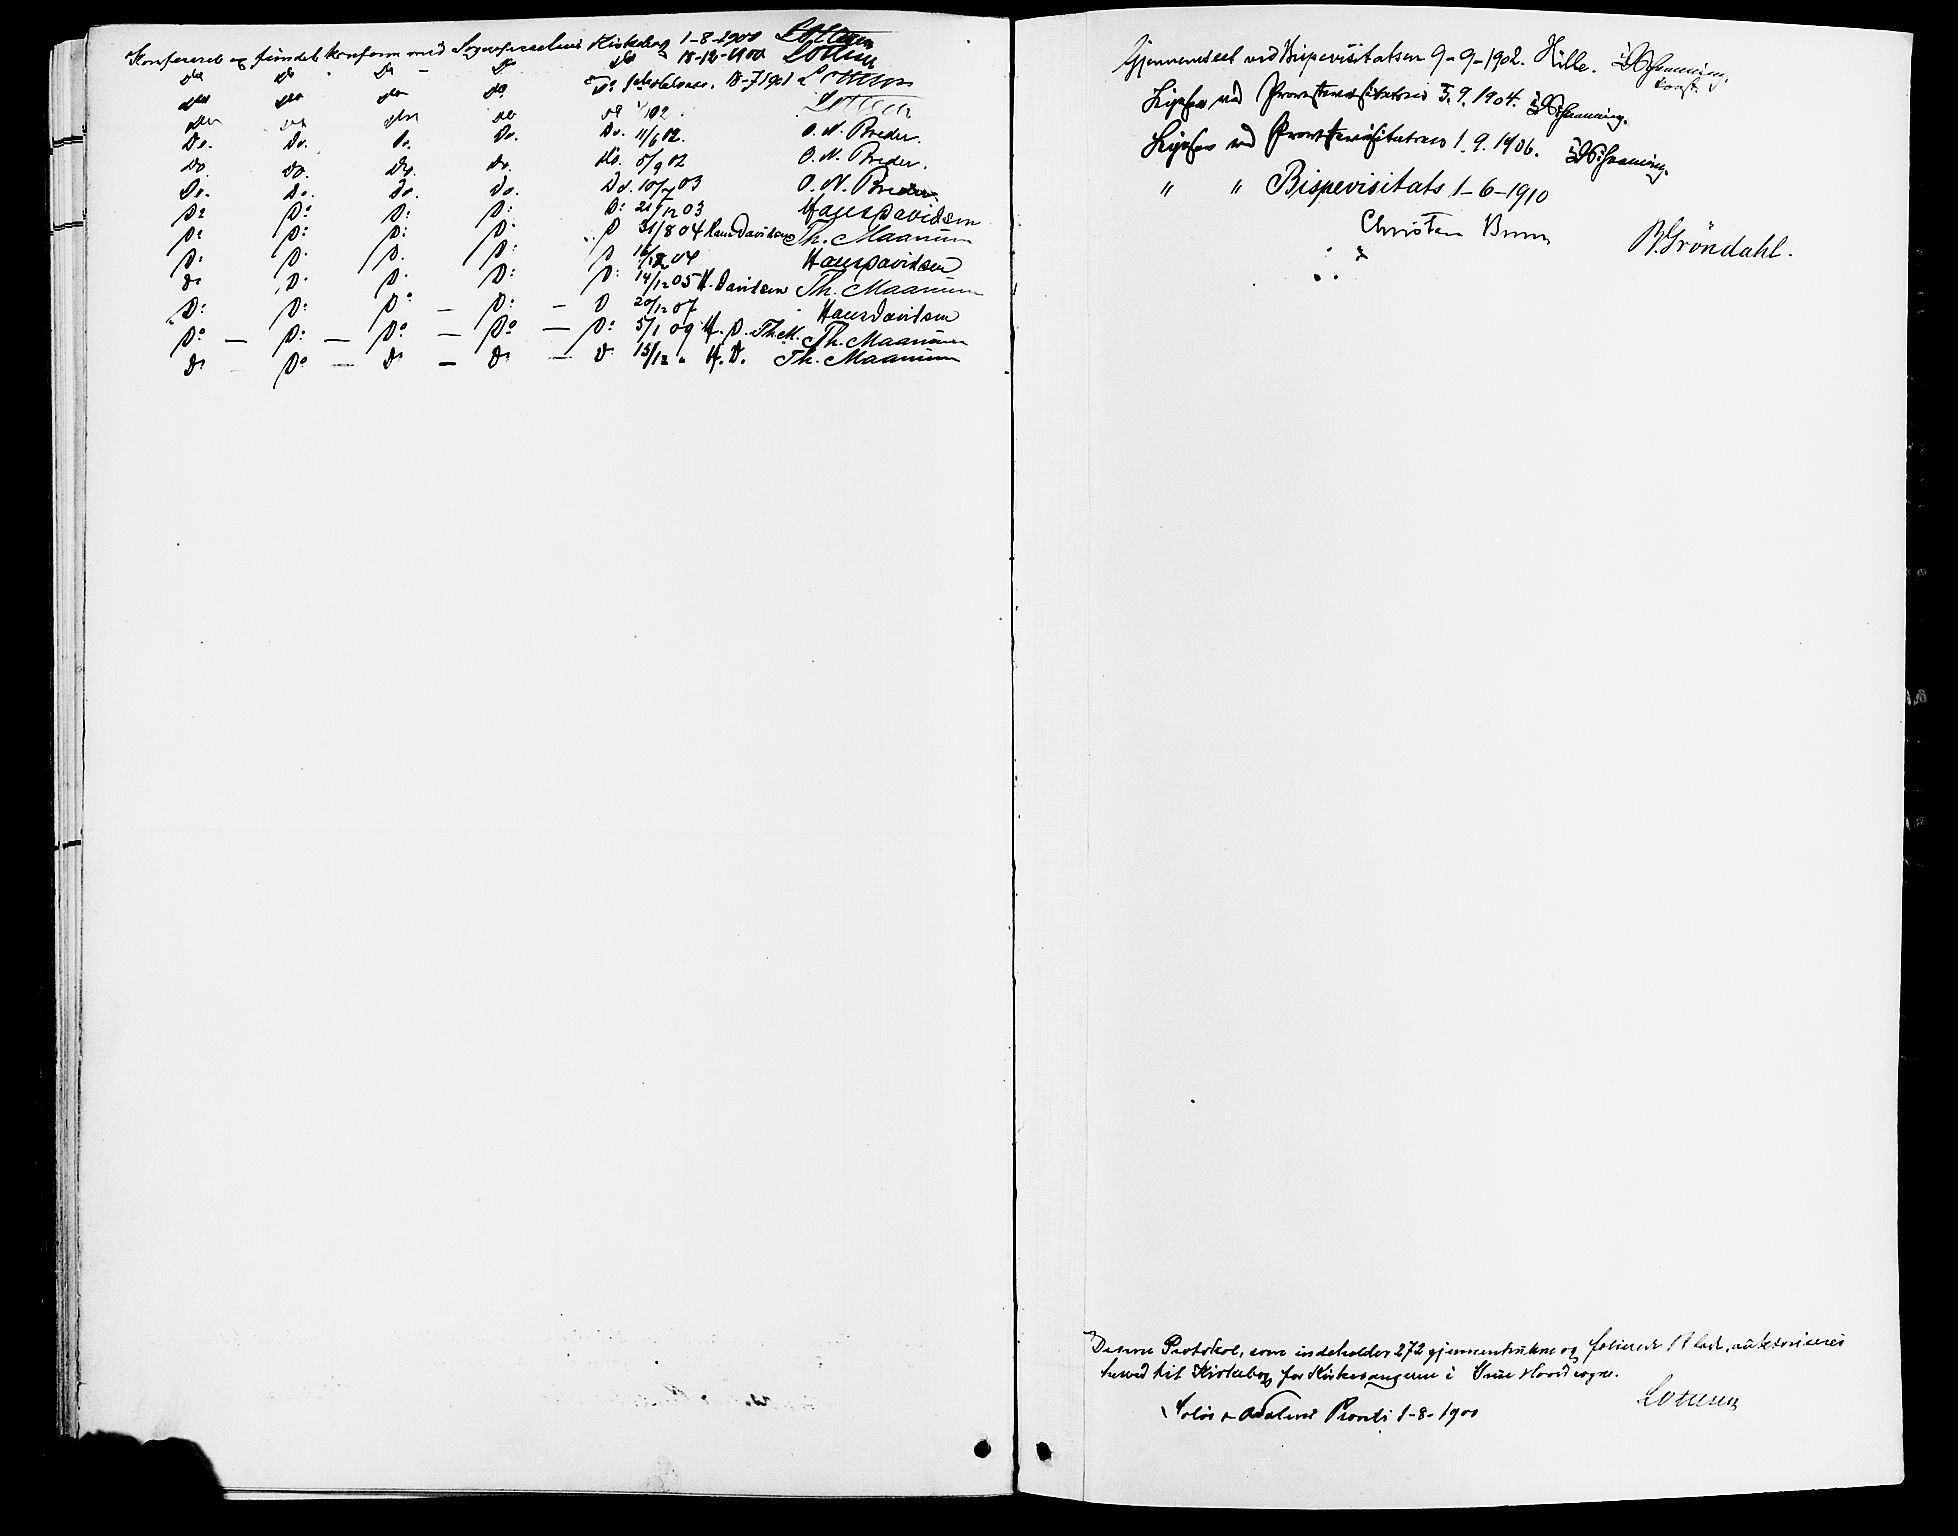 Konfereret og fundet konform med Sognepræstens Kirkebog 1-8-1900 Lottem
do do do - do do 18-12-1900 Lottem
do do do do Do 18-7 1901 Lottem
do do do do do 1/1 02. Lottem
Do. Do. Do. Do. Do. 11/6 02. O. N. Breder.
Do. Do. Do. Do. Do. 5/9 02 O. N. Breder.
Do. Do. Do. Do. Do. 10/7 03 O. N. Breder
Do Do Do Do Do 21/12 03 Hans Davidsen
Do Do Do Do Do 31/8 04 Hans Davidsen Th. Maanum
Do Do Do Do Do 16/12 04 Hans Davidsen
Do Do Do Do Do 14/12 05 H. Davidsen Th. Maanum
Do Do Do - Do - Do 20/12 07 Hans Davidsen
Do - Do - Do - Do - Do 5/1 09 H. D. Th.M. Th. Maanum
Do - Do - Do - Do - Do 13/12 " H. D. Th. Maanum
Gjennemseet ved Bispevisitatsen 9-9-1902. Hille.
konst.
Ligesaa ved Provstevisitatsen 3.9.1904.
Ligesaa ved Provstevisitatsen 1.9.1906.
" " Bispevisitats 1-6-1910
Christen Brun
B. Gröndahl.
Denne Protokol, som indeholder 272 gjennemtrukne og folierede Blade, autoriseres
herved til Kirkebog for Kirkesangeren i Hovedsogn.
Solør & Odalens Provsti 1-8-1900 Lottem